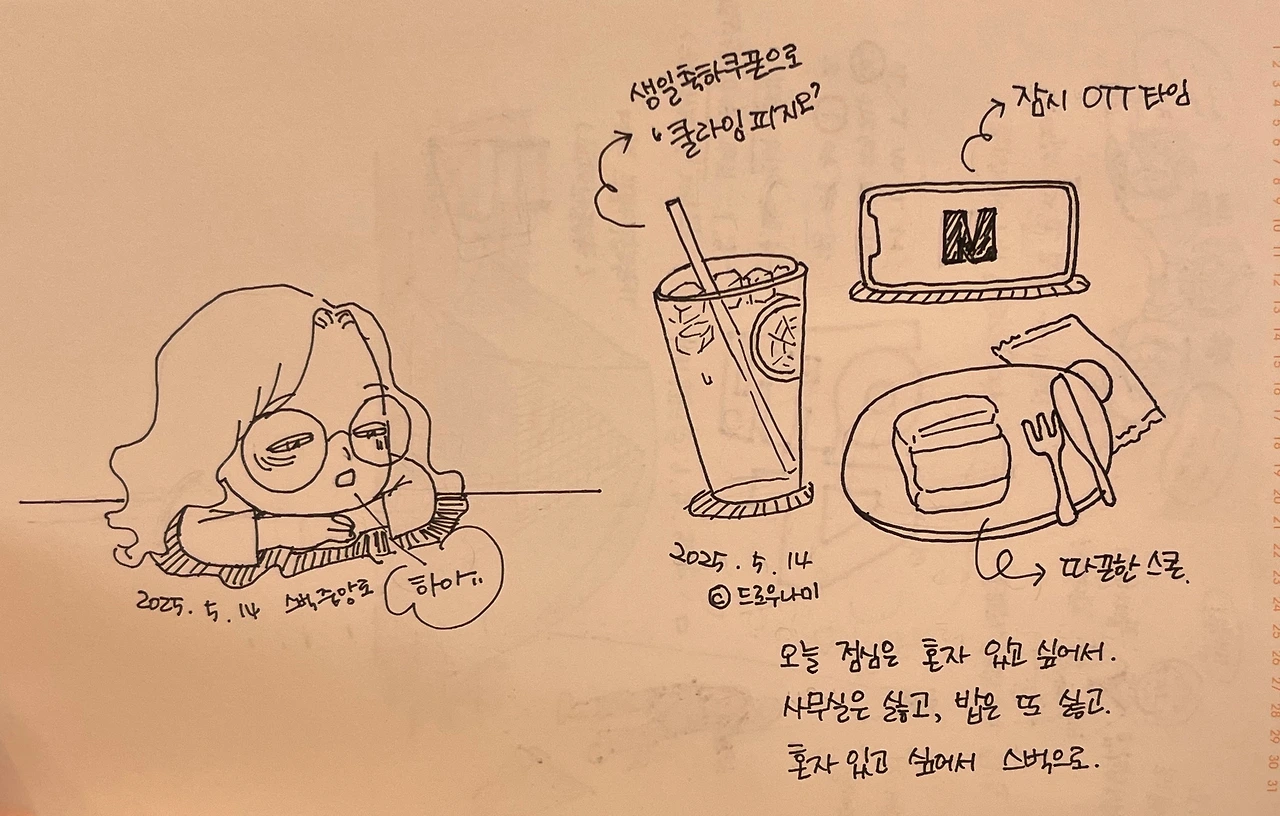 생일축하쿠폰으로
"쿨라임피지오"
잠시 OTT 타임
N
2025. 5. 14 스벅중앙로
하아..
2025. 5. 14
© 드로우나미
따끈한 스콘.
오늘 점심은 혼자 있고 싶어서.
사무실은 싫고, 밥은 또 싫고.
혼자 있고 싶어서 스벅으로.
1 2 3 4 5 6 7 8 9 10 11 12 13 14 15 16 17 18 19 20 21 22 23 24 25 26 27 28 29 30 31